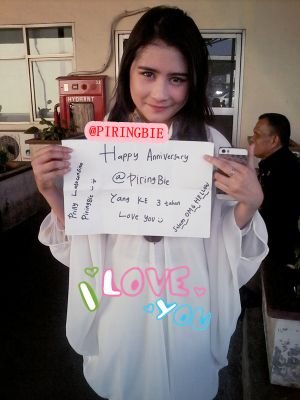 HYDRANT
@PIRINGBIE
Happy Anniversary
@PiringBie
Yang KE 3 tahun
Love you
Prilly Latuconsina
PiringBie
Salam OMG HELLAW
I LOVE
YOU